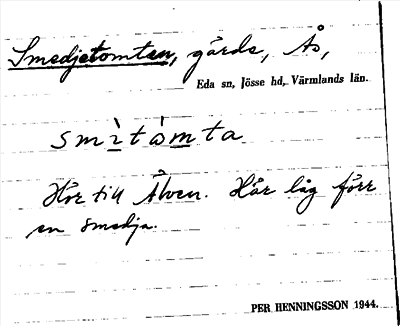 Smedjetomten, gårds, Ås,
Eda sn, Jösse hd, Värmlands län.
smìtåmta
Hör till Älven. Här låg förr
en smedja.
PER HENNINGSSON 1944.